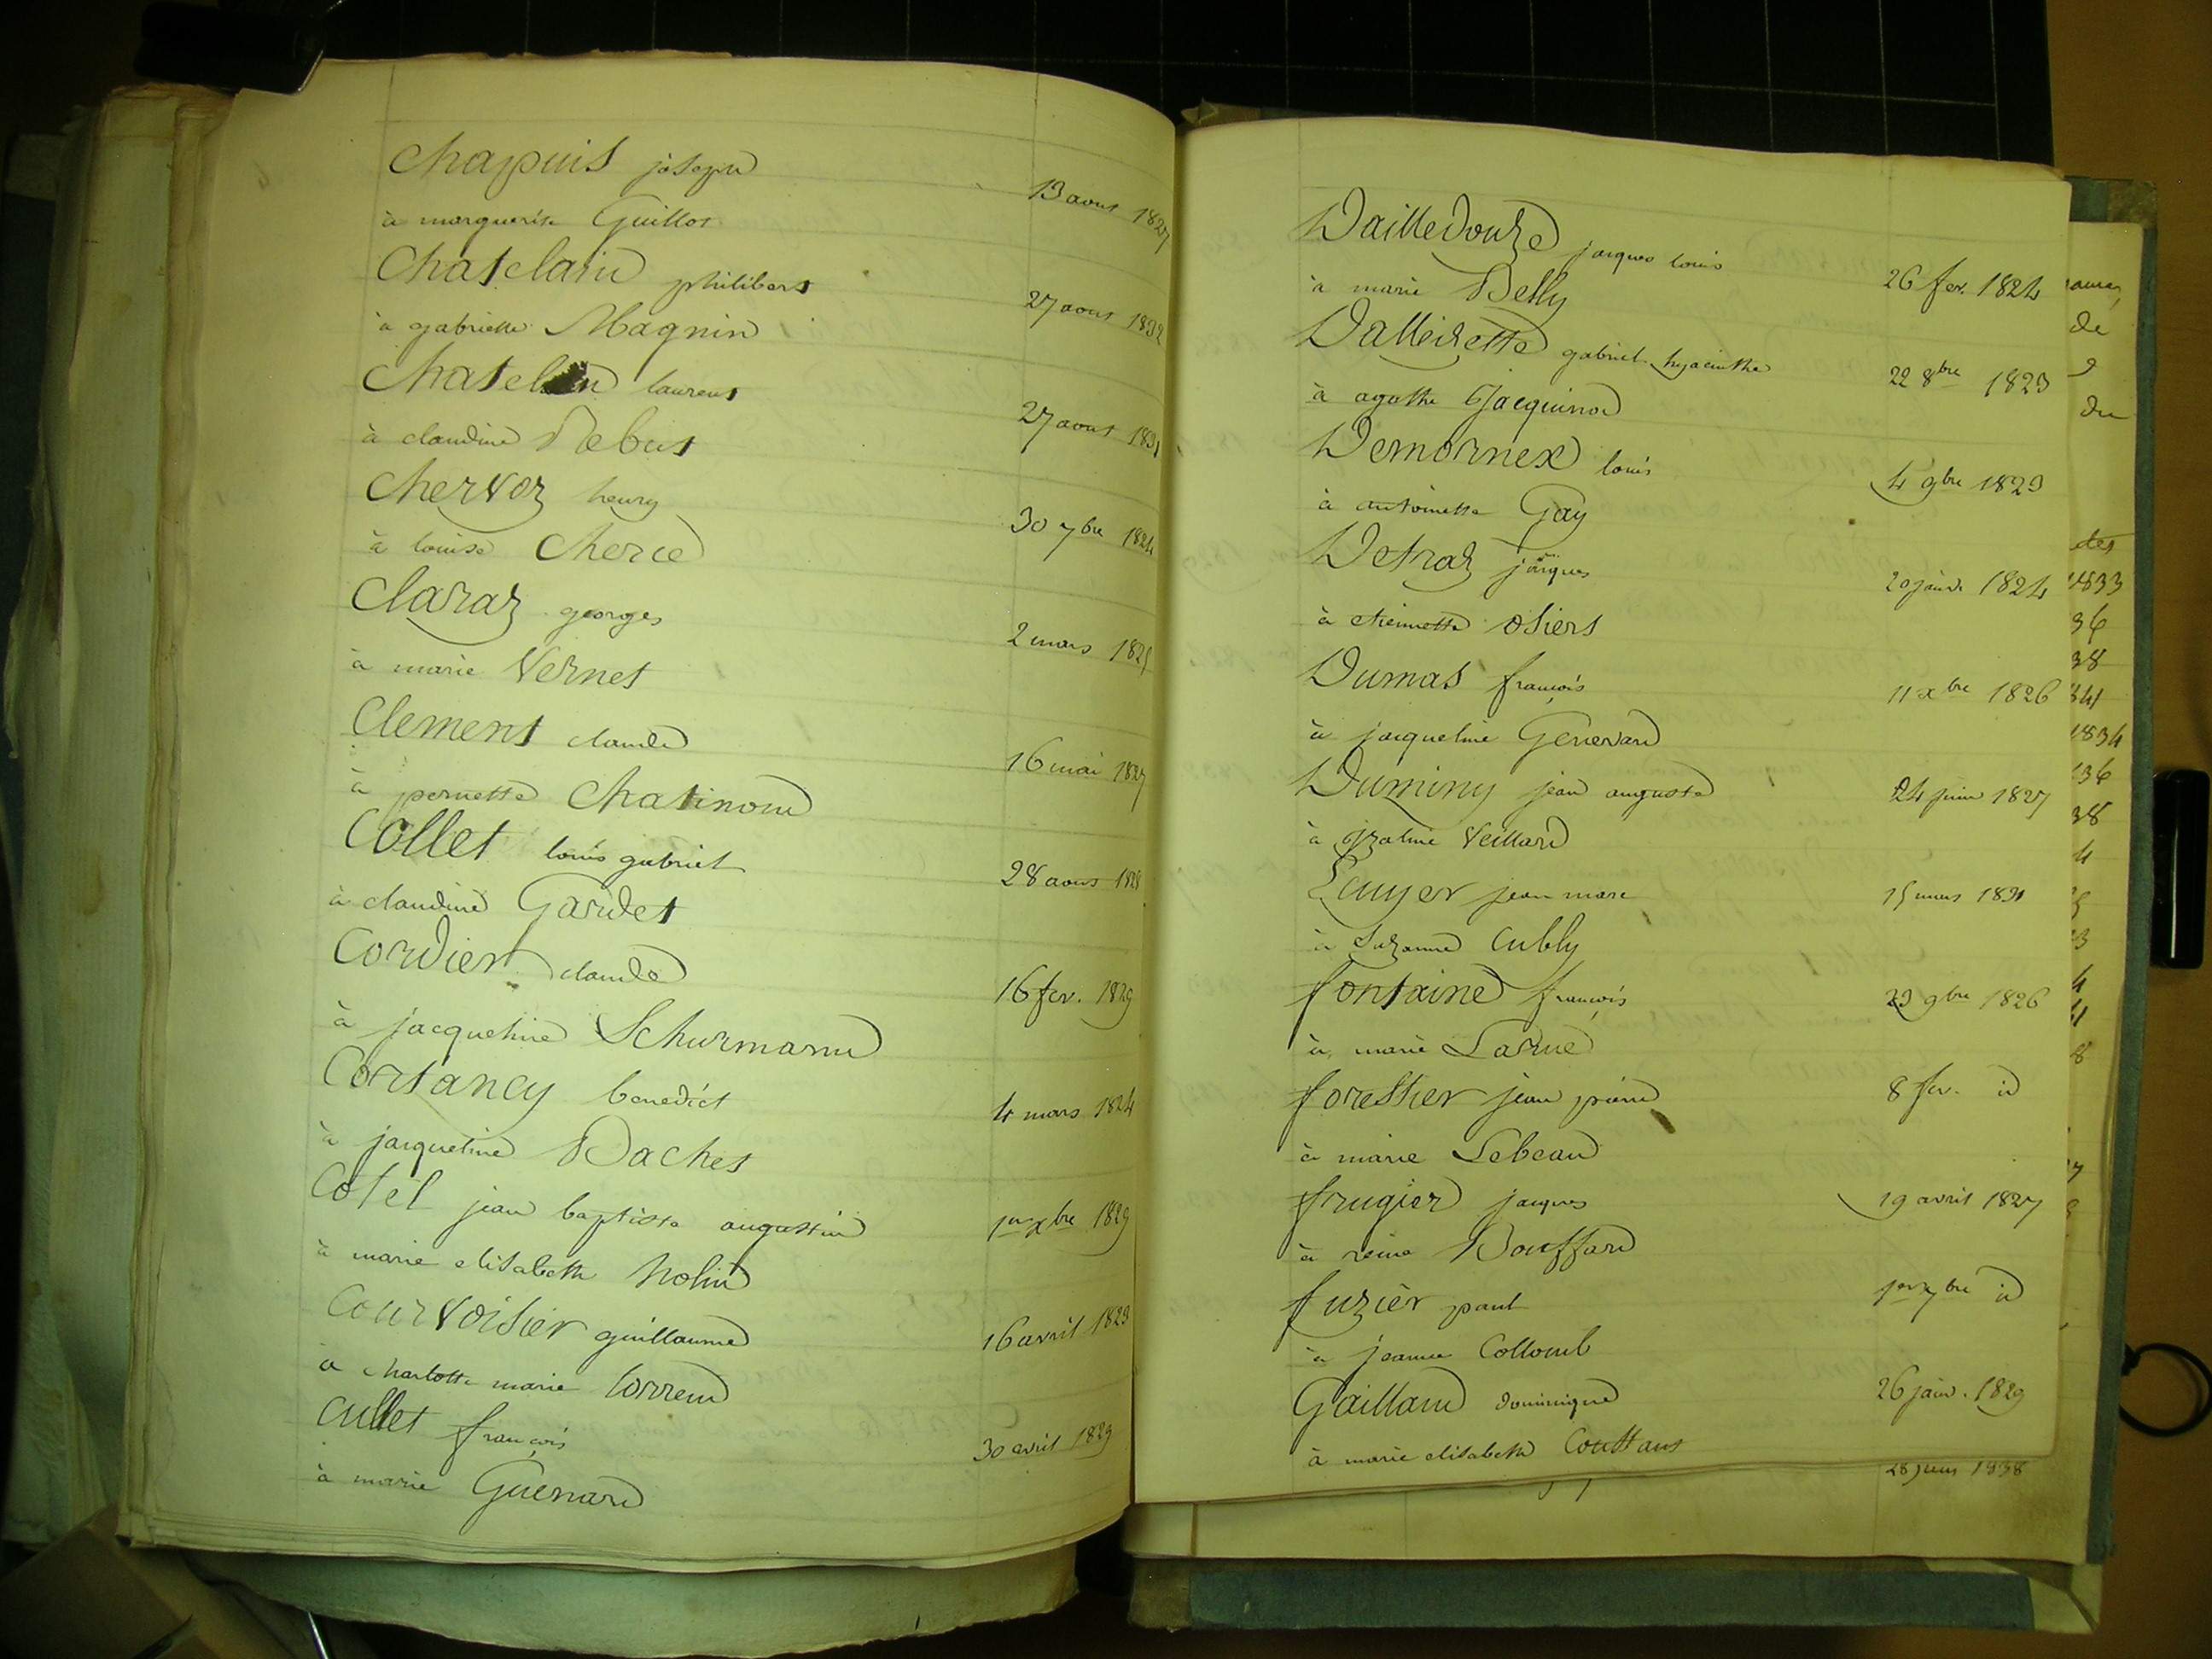 Chapuis joseph 13 aout 1827
à marguerite Guillot
Chatelain philibert 27 aout 1832
à gabrielle Magnin
Chatelain laurent 27 aout 1831
à claudine Debut
Chervoz henry 30 7bre 1824
à louise Cherce
Claraz georges 2 mars 1825
à marie Vernet
Clement claude 16 mai 1827
à pernette Chatinoud
Collet louis gabriel 28 aout 1828
à claudine Gardet
Cordier claude 16 fev. 1829
à jacqueline Schurmann
Cortancy benedict 4 mars 1824
à jacqueline Daches
Cotel jean baptiste augustin 1er xbre 1829
à marie elisabeth Nolin
Courvoisier guillaume 16 avril 1823
à charlotte marie Correud
Cullet françois 30 avril 1829
à marie Guenard
Dailledouze jacques louis 26 fev. 1824
à marie Delly
Dalleizette gabriel hyacinthe 22 8bre 1823
à agathe Jacquinod
Demornex louis 4 9bre 1823
à antoinette Gay
Detraz jacques 20 janv. 1824
à etiennette Osiert
Dumas françois 11 xbre 1826
à jacqueline Genevard
Duminy jean auguste 24 juin 1827
à Veillard
Ecuyer jean marc 15 mars 1831
à Suzanne Cubly
fontaine françois 23 9bre 1826
à marie Larue
forestier jean pierre 8 fev. id
à marie Lebeau
frugier jacques 19 avril 1827
à reine Bouffard
fuzier paul 1er 7bre id
à jeanne Collomb
Gaillard dominique 26 janv. 1829
à marie elisabeth Couttant
28 juin 1838
de
du
1833
36
38
1834
36
38